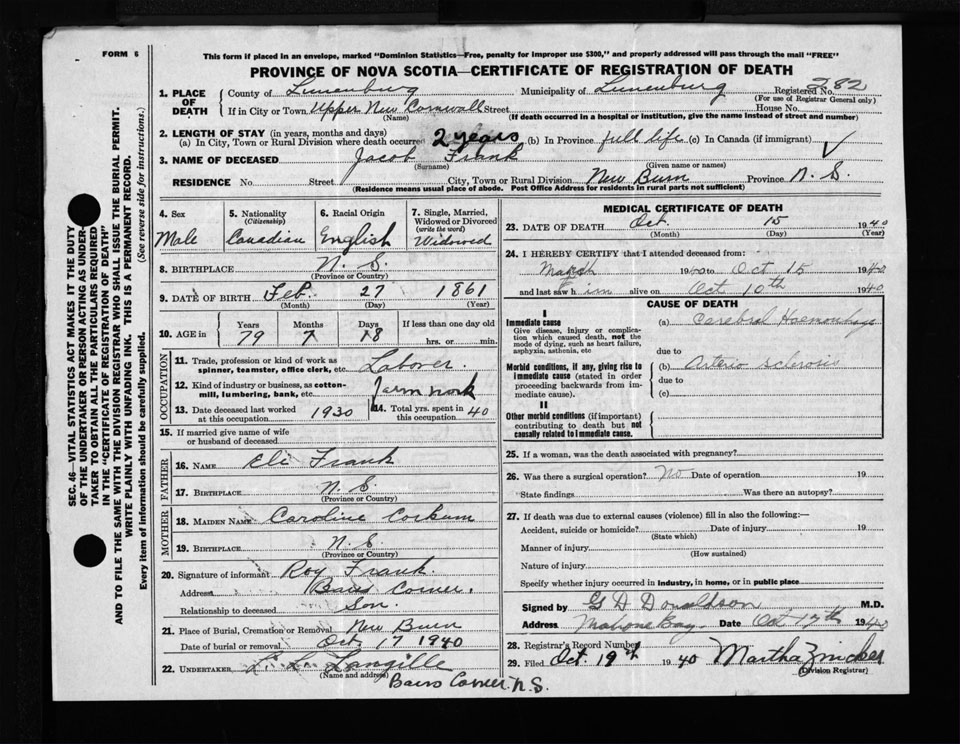 FORM 6
This form if placed in an envelope, marked "Dominion Statistics—Free, penalty for improper use $300," and properly addressed will pass through the mail "FREE"
PROVINCE OF NOVA SCOTIA—CERTIFICATE OF REGISTRATION OF DEATH
1. PLACE OF DEATH County of Lunenburg Municipality of Lunenburg Registered No. 282
(For use of Registrar General only)
If in City or Town Upper New Cornwall Street House No.
(Name) (If death occurred in a hospital or institution, give the name instead of street and number)
2. LENGTH OF STAY (in years, months and days)
(a) In City, Town or Rural Division where death occurred 2 years (b) In Province full life (c) In Canada (if immigrant)
3. NAME OF DECEASED Jacob Frank
(Surname) (Given name or names)
RESIDENCE No. Street City, Town or Rural Division New Burn Province N. S.
(Residence means usual place of abode. Post Office Address for residents in rural parts not sufficient)
4. Sex Male
5. Nationality (Citizenship) Canadian
6. Racial Origin English
7. Single, Married, Widowed or Divorced (write the word) Widowed
8. BIRTHPLACE N. S.
(Province or Country)
9. DATE OF BIRTH Feb. 27 1861
(Month) (Day) (Year)
10. AGE in Years 79 Months 7 Days 18 If less than one day old hrs. or min.
OCCUPATION
11. Trade, profession or kind of work as spinner, teamster, office clerk, etc. Laborer.
12. Kind of industry or business, as cotton-mill, lumbering, bank, etc. Farm work
13. Date deceased last worked at this occupation 1930
14. Total yrs. spent in this occupation 40
15. If married give name of wife or husband of deceased
FATHER
16. NAME Eli Frank
17. BIRTHPLACE N. S.
(Province or Country)
MOTHER
18. MAIDEN NAME Caroline Corkum
19. BIRTHPLACE N. S.
(Province or Country)
20. Signature of informant Roy Frank.
Address Barss Corner.
Relationship to deceased Son.
21. Place of Burial, Cremation or Removal New Burn
Date of burial or removal Oct 17 1940
22. UNDERTAKER L. L. Langille
(Name and address)
Barss Corner. N.S.
MEDICAL CERTIFICATE OF DEATH
23. DATE OF DEATH Oct. 15 1940
(Month) (Day) (Year)
24. I HEREBY CERTIFY that I attended deceased from:
March 1940 to Oct 15 1940
and last saw him alive on Oct 10th 1940
CAUSE OF DEATH
I
Immediate cause
Give disease, injury or complication which caused death, not the mode of dying, such as heart failure, asphyxia, asthenia, etc
(a) Cerebral Haemorrhage
due to
Morbid conditions, if any, giving rise to immediate cause (stated in order proceeding backwards from immediate cause).
(b) Arterio sclerosis
due to
(c)
II
Other morbid conditions (if important) contributing to death but not causally related to immediate cause.
25. If a woman, was the death associated with pregnancy?
26. Was there a surgical operation? No Date of operation 19
State findings Was there an autopsy?
27. If death was due to external causes (violence) fill in also the following:—
Accident, suicide or homicide? Date of injury 19
(State which)
Manner of injury
(How sustained)
Nature of injury
Specify whether injury occurred in industry, in home, or in public place
Signed by G D Donaldson M.D.
Address Mahone Bay. Date Oct 17th 1940
28. Registrar's Record Number
29. Filed Oct 19th 1940 Martha Zincker
(Division Registrar)
SEC. 46—VITAL STATISTICS ACT MAKES IT THE DUTY
OF THE UNDERTAKER OR PERSON ACTING AS UNDER-
TAKER TO OBTAIN ALL THE PARTICULARS REQUIRED
IN THE "CERTIFICATE OF REGISTRATION OF DEATH"
AND TO FILE THE SAME WITH THE DIVISION REGISTRAR WHO SHALL ISSUE THE BURIAL PERMIT.
WRITE PLAINLY WITH UNFADING INK. THIS IS A PERMANENT RECORD.
Every item of information should be carefully supplied. (See reverse side for instructions.)